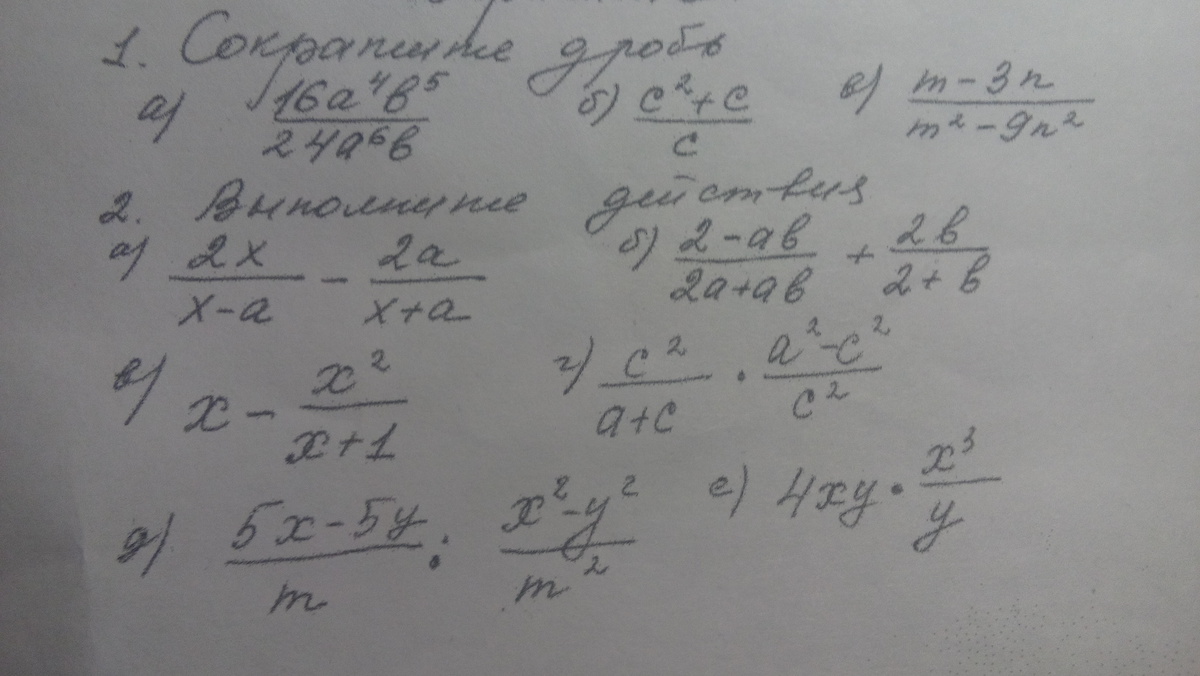 1. Сократите дробь
а) \frac{16a^4b^5}{24a^6b} б) \frac{c^2+c}{c} в) \frac{m-3n}{m^2-9n^2}
2. Выполните действия
а) \frac{2x}{x-a} - \frac{2a}{x+a} б) \frac{2-ab}{2a+ab} + \frac{2b}{2+b}
в) x - \frac{x^2}{x+1} г) \frac{c^2}{a+c} \cdot \frac{a^2-c^2}{c^2}
д) \frac{5x-5y}{m} : \frac{x^2-y^2}{m^2} е) 4xy \cdot \frac{x^3}{y}